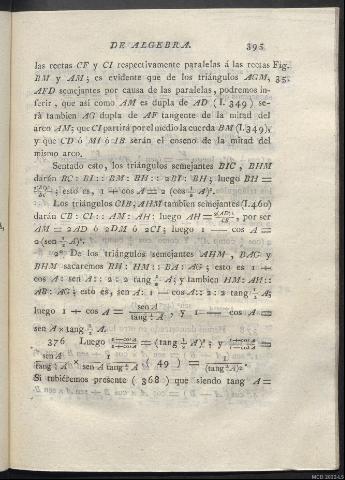 DE ALGEBRA. 395
las rectas CF y CI respectivamente paralelas á las rectas Fig.
BM y AM; es evidente que de los triángulos AGM, 35.
AFD semejantes por causa de las paralelas, podremos in-
ferir, que así como AM es dupla de AD (I. 349) se-
rá tambien AG dupla de AF tangente de la mitad del
arco AM; que CI partirá por el medio la cuerda BM (I. 349),
y que CD ó MI ó IB serán el coseno de la mitad del
mismo arco.
Sentado esto, los triángulos semejantes BIC, BHM
darán BC : BI :: BM : BH :: 2BI : BH; luego BH =
; esto es, 1 + cos A = 2 (cos ½ A)².
Los triángulos CIB, AHM tambien semejantes (I. 460)
darán CB : CI :: AM : AH: luego AH = , por ser
AM = 2AD ó 2DM ó 2CI; luego 1 — cos A =
2 (sen ½ A)².
2.° De los triángulos semejantes AHM, BAG y
BHM sacaremos BH : HM :: BA : AG; esto es 1 +
cos A : sen A :: 2 : 2 tang ½ A; y tambien HM : AH ::
AB : AG; esto es, sen A : 1 — cos A :: 2 : 2 tang ½ A;
luego 1 + cos A = sen A / tang ½ A, y 1 — cos A =
sen A × tang ½ A.
376 Luego 1—cos A / 1+cos A = (tang ½ A)²; y 1+cos A / 1—cos A =
sen A / tang ½ A × 1 / sen A tang ½ A (49) = 1 / (tang ½ A)².
Si tubiéremos presente (368) que siendo tang A =
MCD 2022-L5